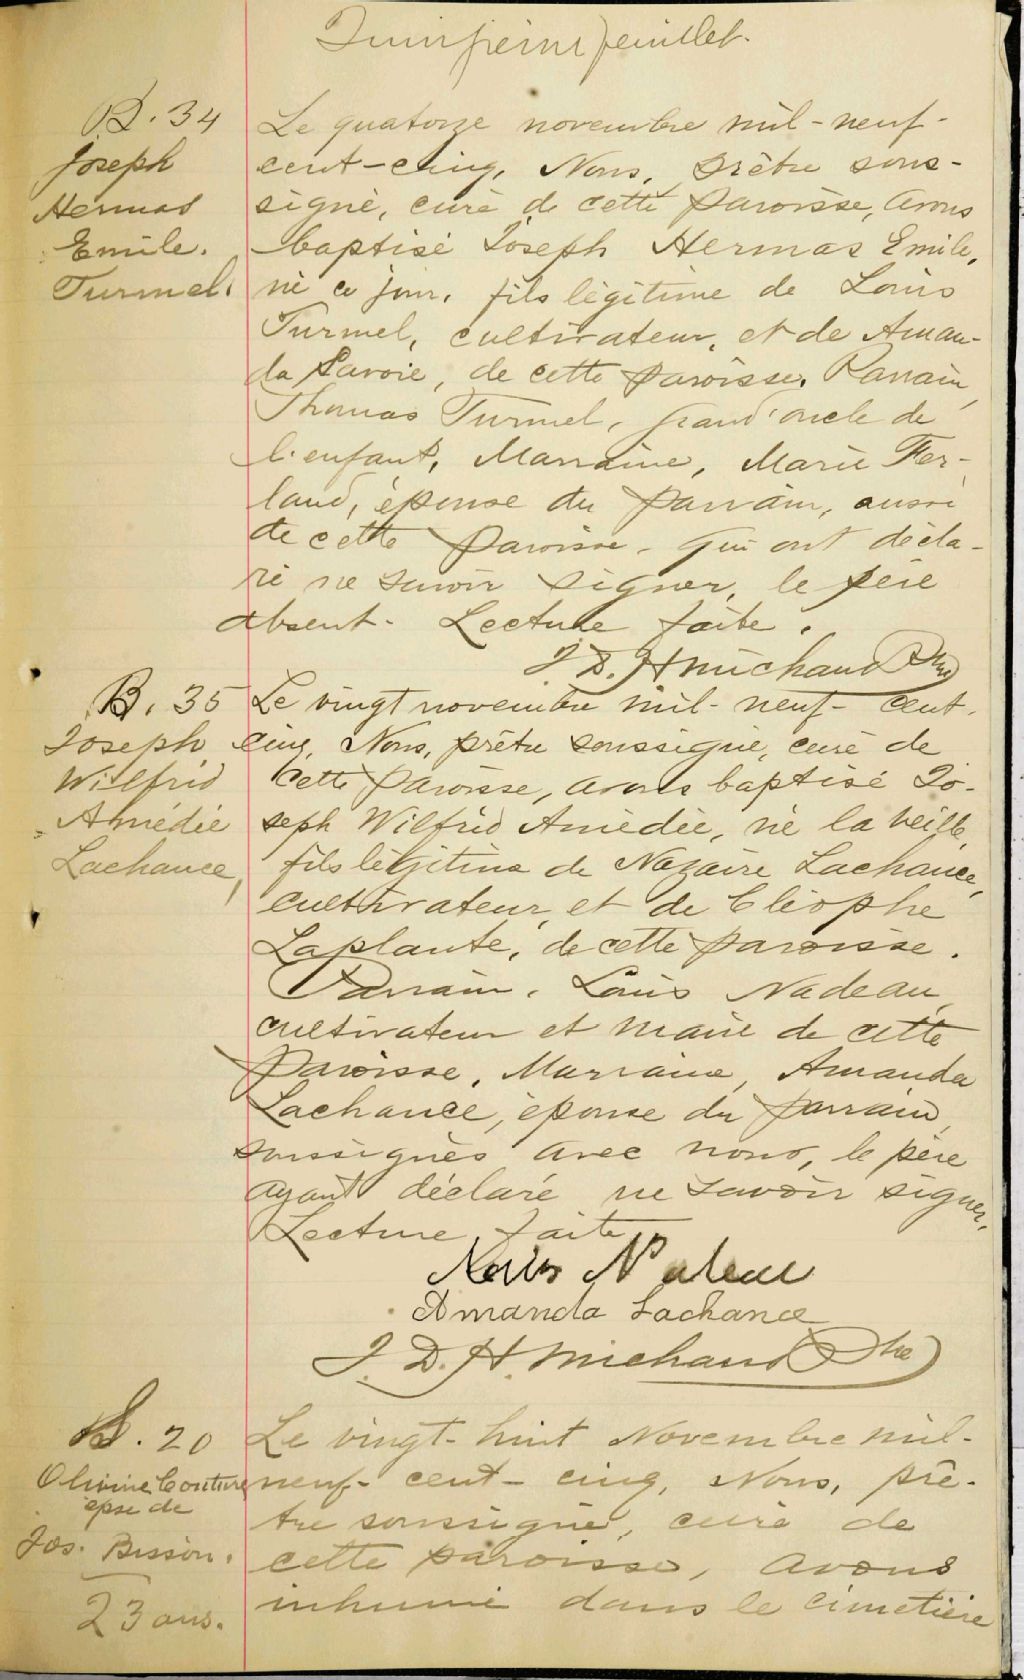 feuillet.
B. 34
Joseph
Hermas
Emile.
Turmel.
Le quatorze novembre mil-neuf-
cent-cinq, Nous, prêtre sous-
signé, curé de cette paroisse, avons
baptisé Joseph Hermas Emile,
né ce jour, fils légitime de Louis
Turmel, cultivateur, et de Aman-
da Savoie, de cette paroisse. Parrain,
Thomas Turmel, grand'oncle de
l'enfant, Marraine, Marie Fer-
land, épouse du parrain, aussi
de cette paroisse. qui ont décla-
ré ne savoir signer, le père
absent. Lecture faite.
J. D. H Michaud Ptre
B. 35
Joseph
Wilfrid
Amédée
Lachance,
Le vingt novembre mil-neuf-cent-
cinq, Nous, prêtre soussigné, curé de
cette paroisse, avons baptisé Jo-
seph Wilfrid Amédée, né la veille,
fils légitime de Nazaire Lachance,
cultivateur, et de Cléophe
Laplante, de cette paroisse.
Parrain. Louis Nadeau,
cultivateur et maire de cette
paroisse, Marraine, Amanda
Lachance, épouse du parrain,
soussignés avec nous, le père
ayant déclaré ne savoir signer.
Lecture faite
Louis Nadeau
Amanda Lachance
J. D. H. Michaud Ptre
S. 20
Olivine Couture
epse de
Jos. Bisson.
23 ans.
Le vingt-huit Novembre mil-
neuf-cent-cinq, Nous, prê-
tre soussigné, curé de
cette paroisse, avons
inhumé dans le cimetière